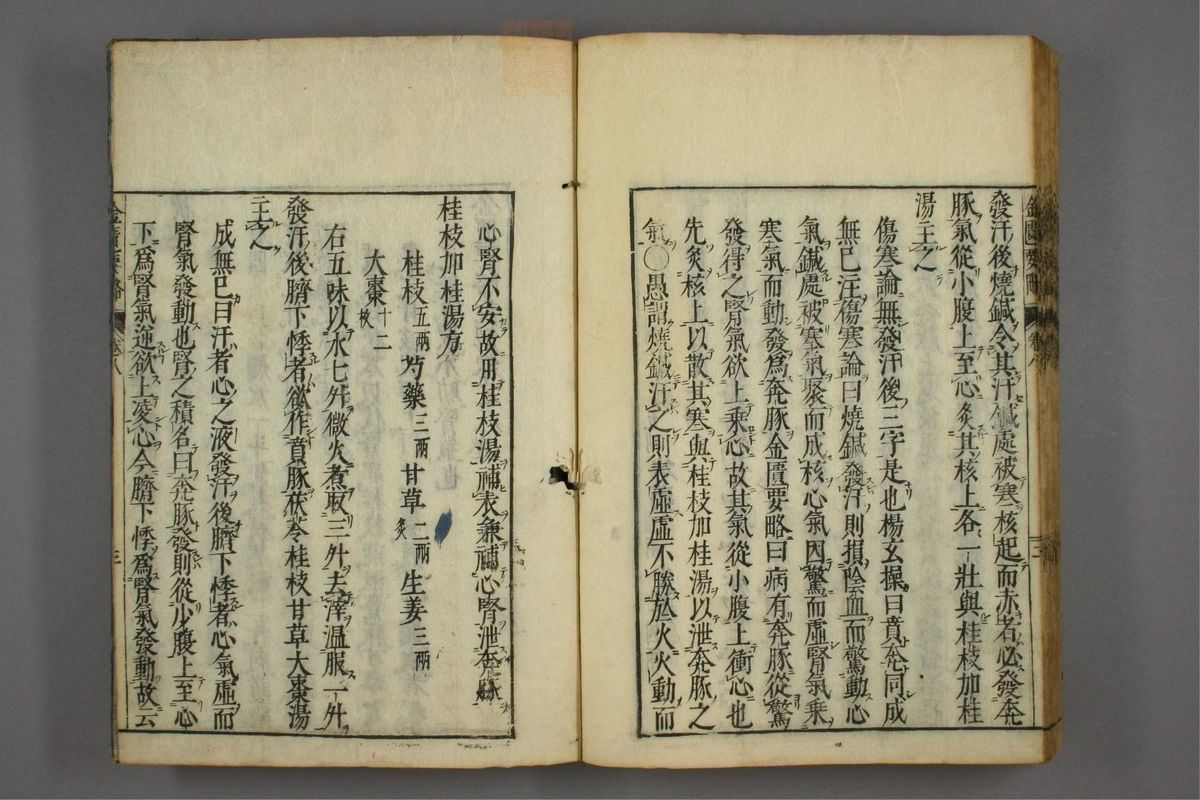 發汗後燒鍼令其汗鍼處被寒核起而赤者必發奔
豚氣從小腹上至心灸其核上各一壯與桂枝加桂
湯主之
傷寒論無發汗後三字是也楊玄操曰賁奔同成
無已注傷寒論曰燒鍼發汗則損陰血而驚動心
氣鍼處被寒氣聚而成核心氣因驚而虛腎氣乗
寒氣而動發爲奔豚金匱要略曰病有奔豚從驚
發得之腎氣欲上乗心故其氣從小腹上衝心也
先灸核上以散其寒與桂枝加桂湯以泄奔豚之
氣〇愚謂燒鍼汗之則表虛虛不勝於火火動而
心腎不安故用桂枝湯補表兼補心腎泄奔豚
桂枝加桂湯方
桂枝五兩 芍藥三兩 甘草二兩炙 生姜三兩
大棗十二枚
右五味以水七升微火煮取三升去滓温服一升
發汗後臍下悸者欲作賁豚茯苓桂枝甘草大棗湯
主之
成無已曰汗者心之液發汗後臍下悸者心氣虛而
腎氣發動也腎之積名曰奔豚發則從少腹上至心
下爲腎氣逆欲上凌心今臍下悸爲腎氣發動故云